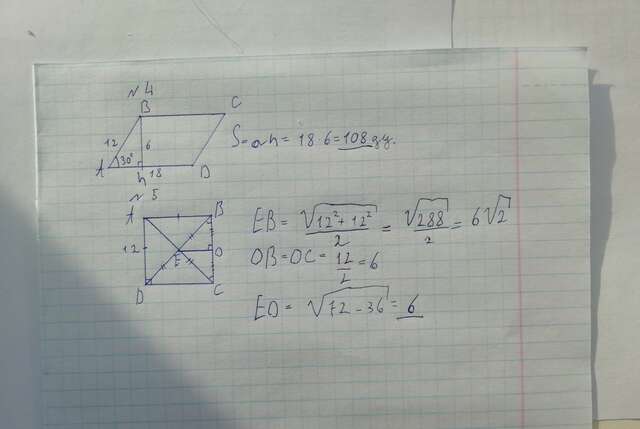 № 4
B C
12 6
A 30° h 18 D
S=ah= 18·6=108
№ 5
A B
12
E O
D C
EB = √(12²+12²)/2 = √288/2 = 6√2
OB=OC= 12/2 =6
EO = √(72-36) = 6